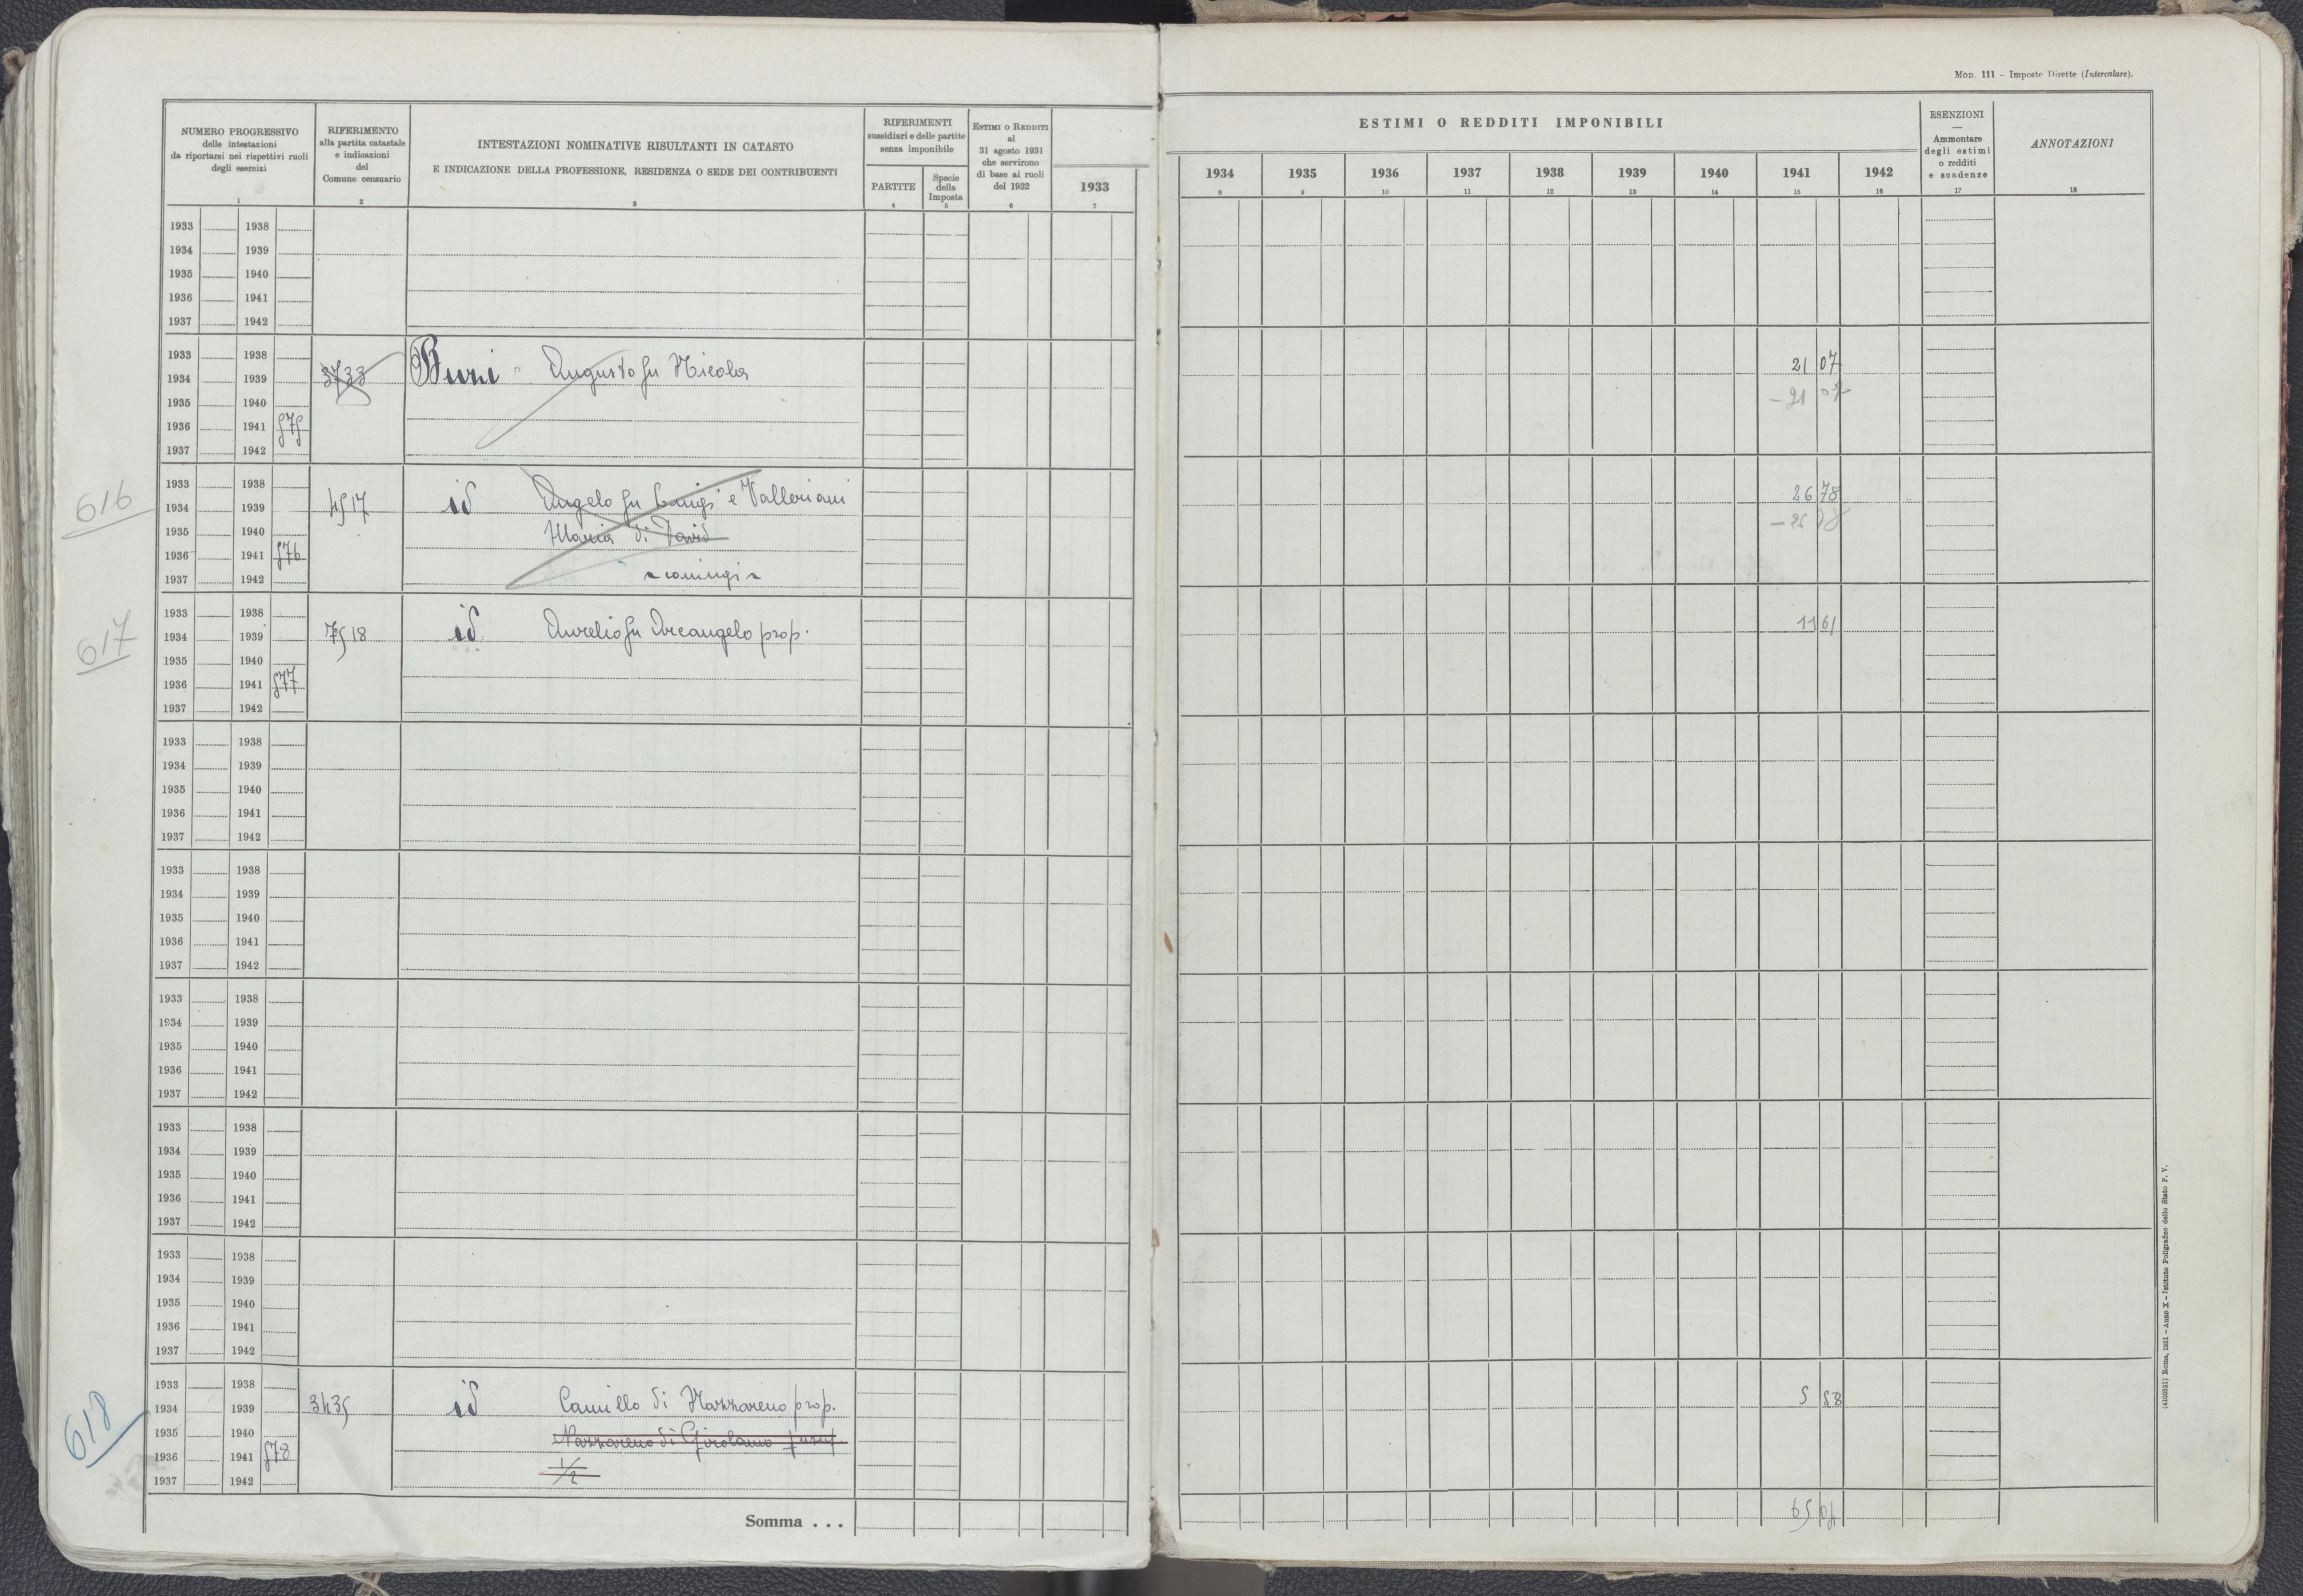 MOD. 111 – Imposte Dirette (Intercalare).
NUMERO PROGRESSIVO
delle intestazioni
da riportarsi nei rispettivi ruoli
degli esercizi
1
RIFERIMENTO
alla partita catastale
e indicazioni
del
Comune censuario
2
INTESTAZIONI NOMINATIVE RISULTANTI IN CATASTO
E INDICAZIONE DELLA PROFESSIONE, RESIDENZA O SEDE DEI CONTRIBUENTI
3
RIFERIMENTI
sussidiari e delle partite
senza imponibile
PARTITE
4
Specie
della
Imposta
5
ESTIMI O REDDITI
al
31 agosto 1931
che servirono
di base ai ruoli
del 1932
6
1933
7
ESTIMI O REDDITI IMPONIBILI
1934 1935 1936 1937 1938 1939 1940 1941 1942
8 9 10 11 12 13 14 15 16
ESENZIONI
—
Ammontare
degli estimi
o redditi
e scadenze
17
ANNOTAZIONI
18
1933 1938
1934 1939
1935 1940
1936 1941
1937 1942
1933 1938
1934 1939 3733 Buzi Augusto fu Nicola 21 07
1935 1940 – 21 07
1936 1941 575
1937 1942
616
1933 1938
1934 1939 4517 id Angelo fu Luigi e Valleriani 26 78
1935 1940 Maria di David – 26 78
1936 1941 576
1937 1942 coniugi
617
1933 1938
1934 1939 7518 id Aurelio fu Arcangelo prop. 11 61
1935 1940
1936 1941 577
1937 1942
1933 1938
1934 1939
1935 1940
1936 1941
1937 1942
1933 1938
1934 1939
1935 1940
1936 1941
1937 1942
1933 1938
1934 1939
1935 1940
1936 1941
1937 1942
1933 1938
1934 1939
1935 1940
1936 1941
1937 1942
1933 1938
1934 1939
1935 1940
1936 1941
1937 1942
618
1933 1938
1934 1939 3435 id Camillo di Nazzareno prop. 5 58
1935 1940 Nazzareno di Girolamo
1936 1941 578 1/2
1937 1942
Somma . . . 65 04
(4103351) Roma, 1931 – Anno X – Istituto Poligrafico dello Stato P. V.